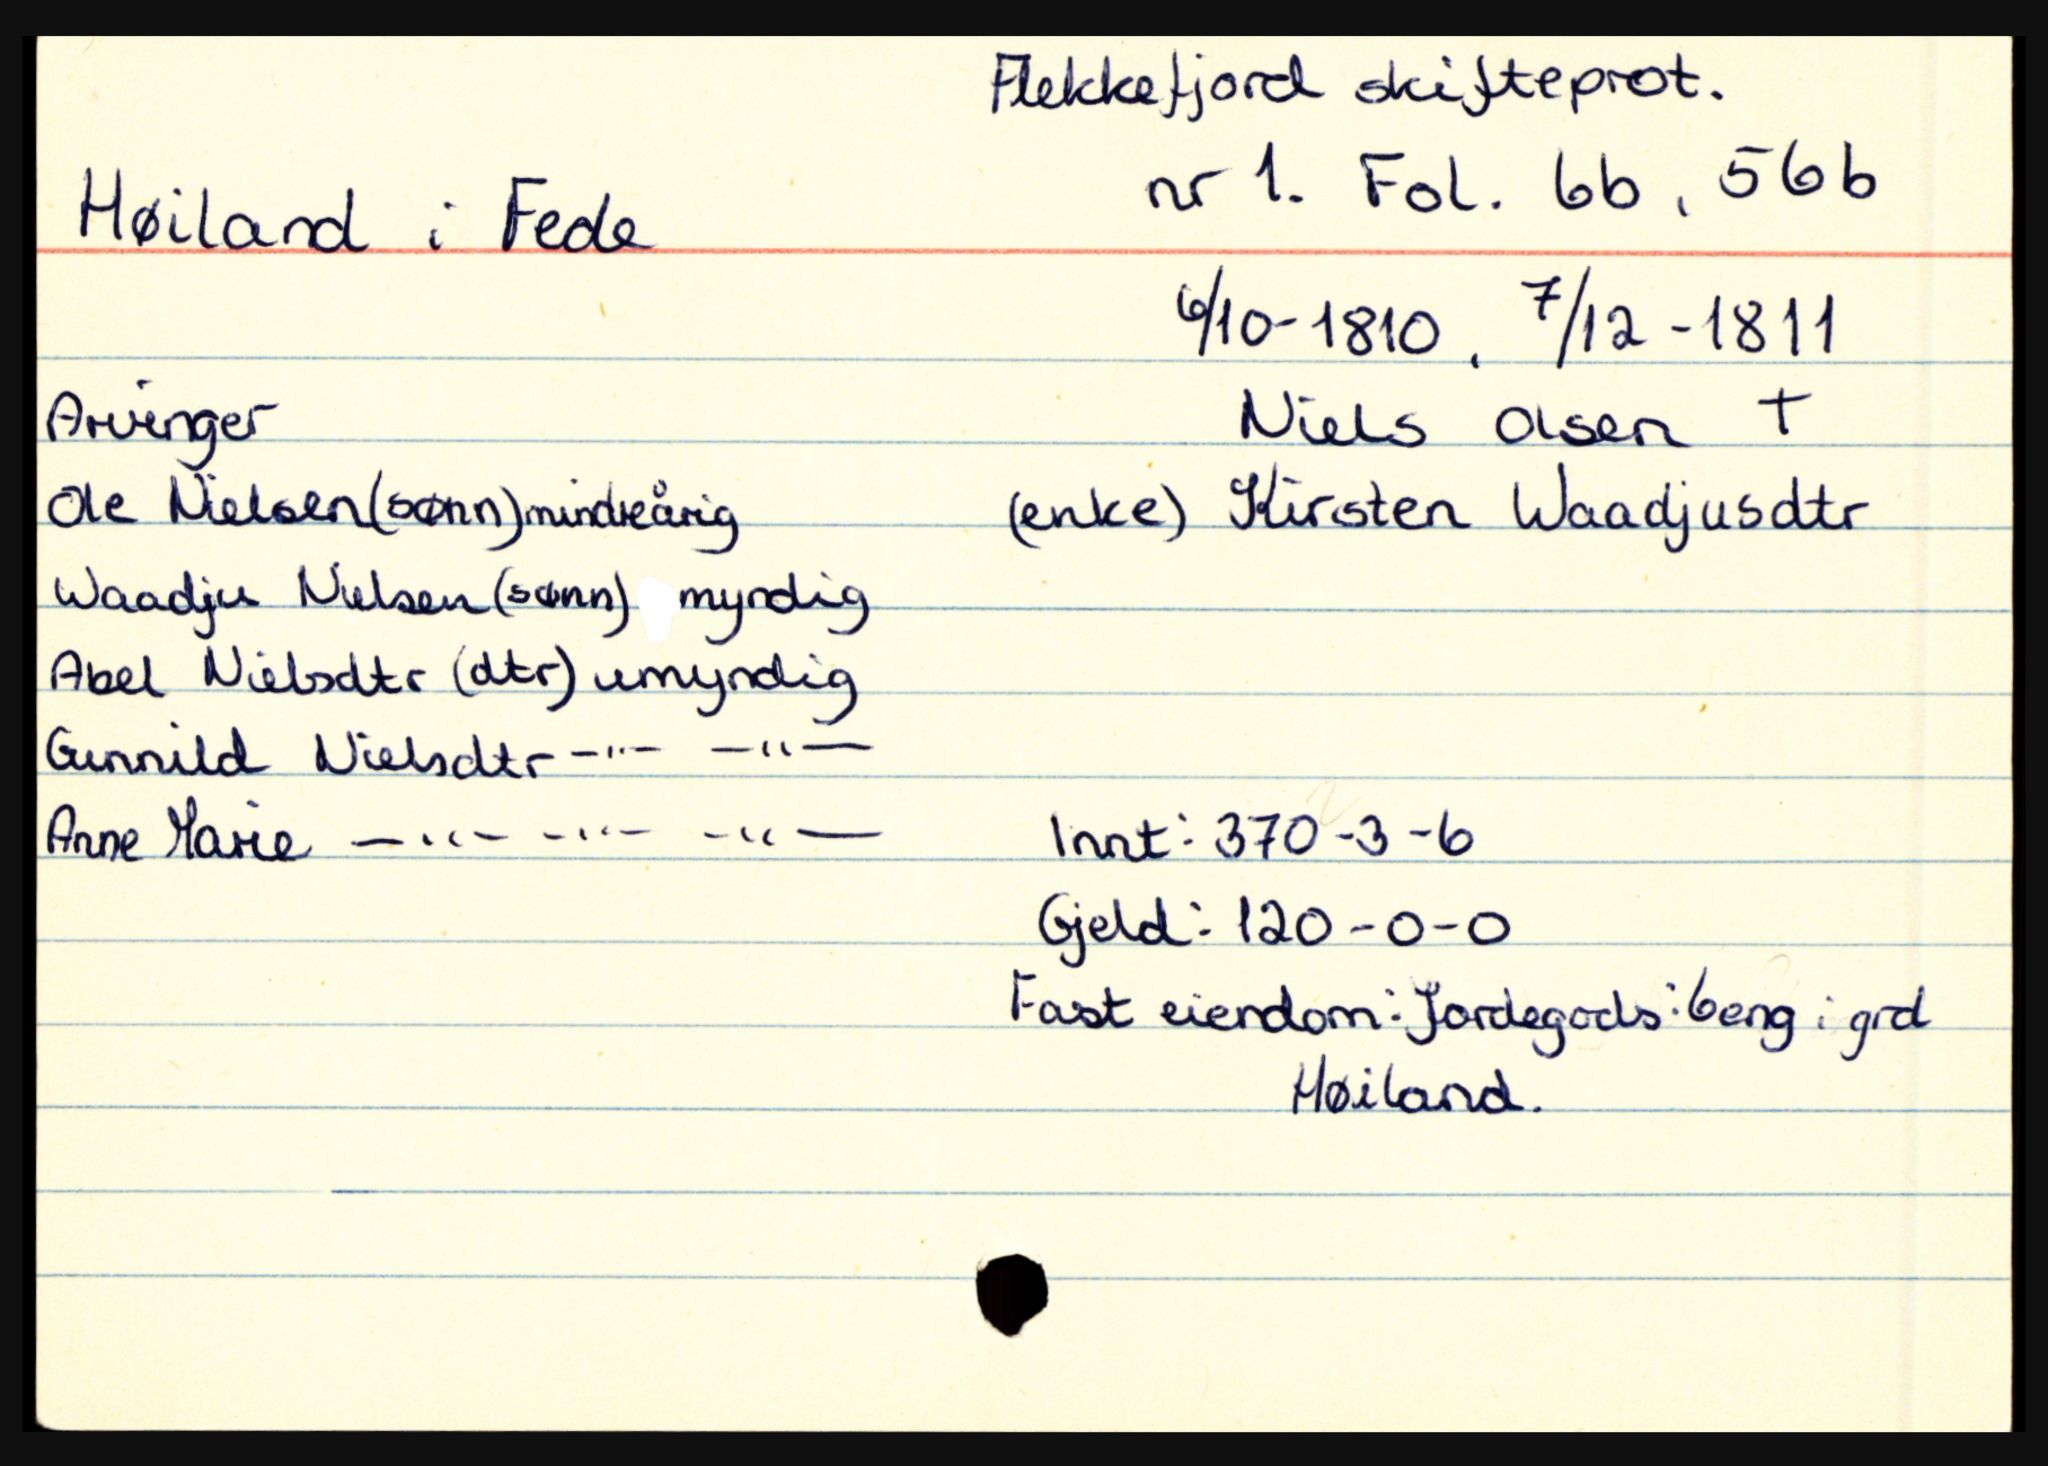 Flekkefjord skifteprot.
nr 1. Fol. 6b, 56b
Høiland i Fede
6/10-1810, 7/12-1811
Arvinger
Niels Olsen †
Ole Nielsen (sønn) mindreårig
(enke) Kirsten Waadjusdtr
Waadju Nielsen (sønn) myndig
Abel Nielsdtr (dtr) umyndig
Gunnild Nielsdtr -"- -"-
Anne Marie -"- -"- -"-
Innt: 370-3-6
Gjeld: 120-0-0
Fast eiendom: Jordegods: 6eng i grd
Høiland.